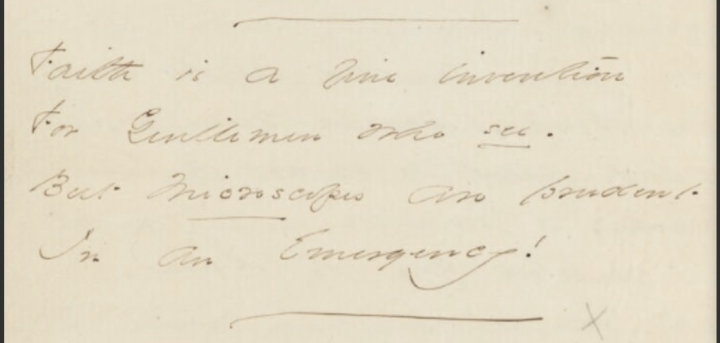 Faith is a fine invention
For Gentlemen who see.
But Microscopes are prudent
In an Emergency!
X